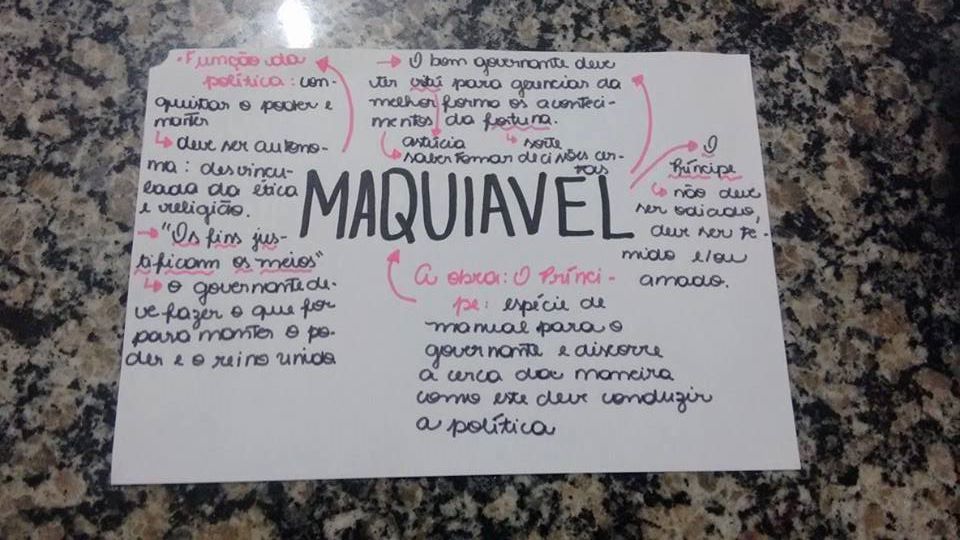 • Função da
política: con-
quistar o poder e
manter
↳ deve ser autono-
ma: desvincu-
lada da ética
e religião.
→ "Os fins jus-
tificam os meios"
↳ o governante de-
ve fazer o que for
para manter o po-
der e o reino unido
→ O bom governante deve
ter vitú para gerenciar da
melhor forma os aconteci-
mentos da fortuna.
astúcia ↳ sorte
saber tomar decisões cer-
tas
MAQUIAVEL
O
Príncipe
↳ não deve
ser odiado,
deve ser te-
mido e/ou
amado.
A obra: O Prínci-
pe: espécie de
manual para o
governante e discorre
a cerca da maneira
como este deve conduzir
a política